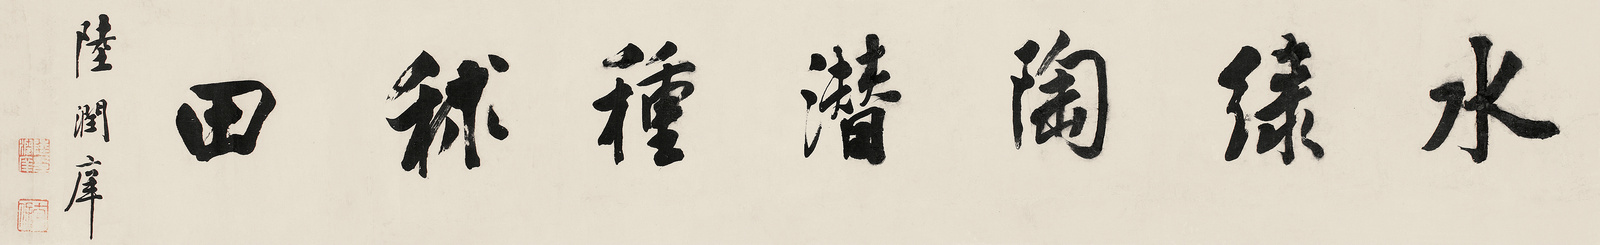 水綠陶潛種秫田
陸潤庠